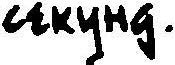 секунд.